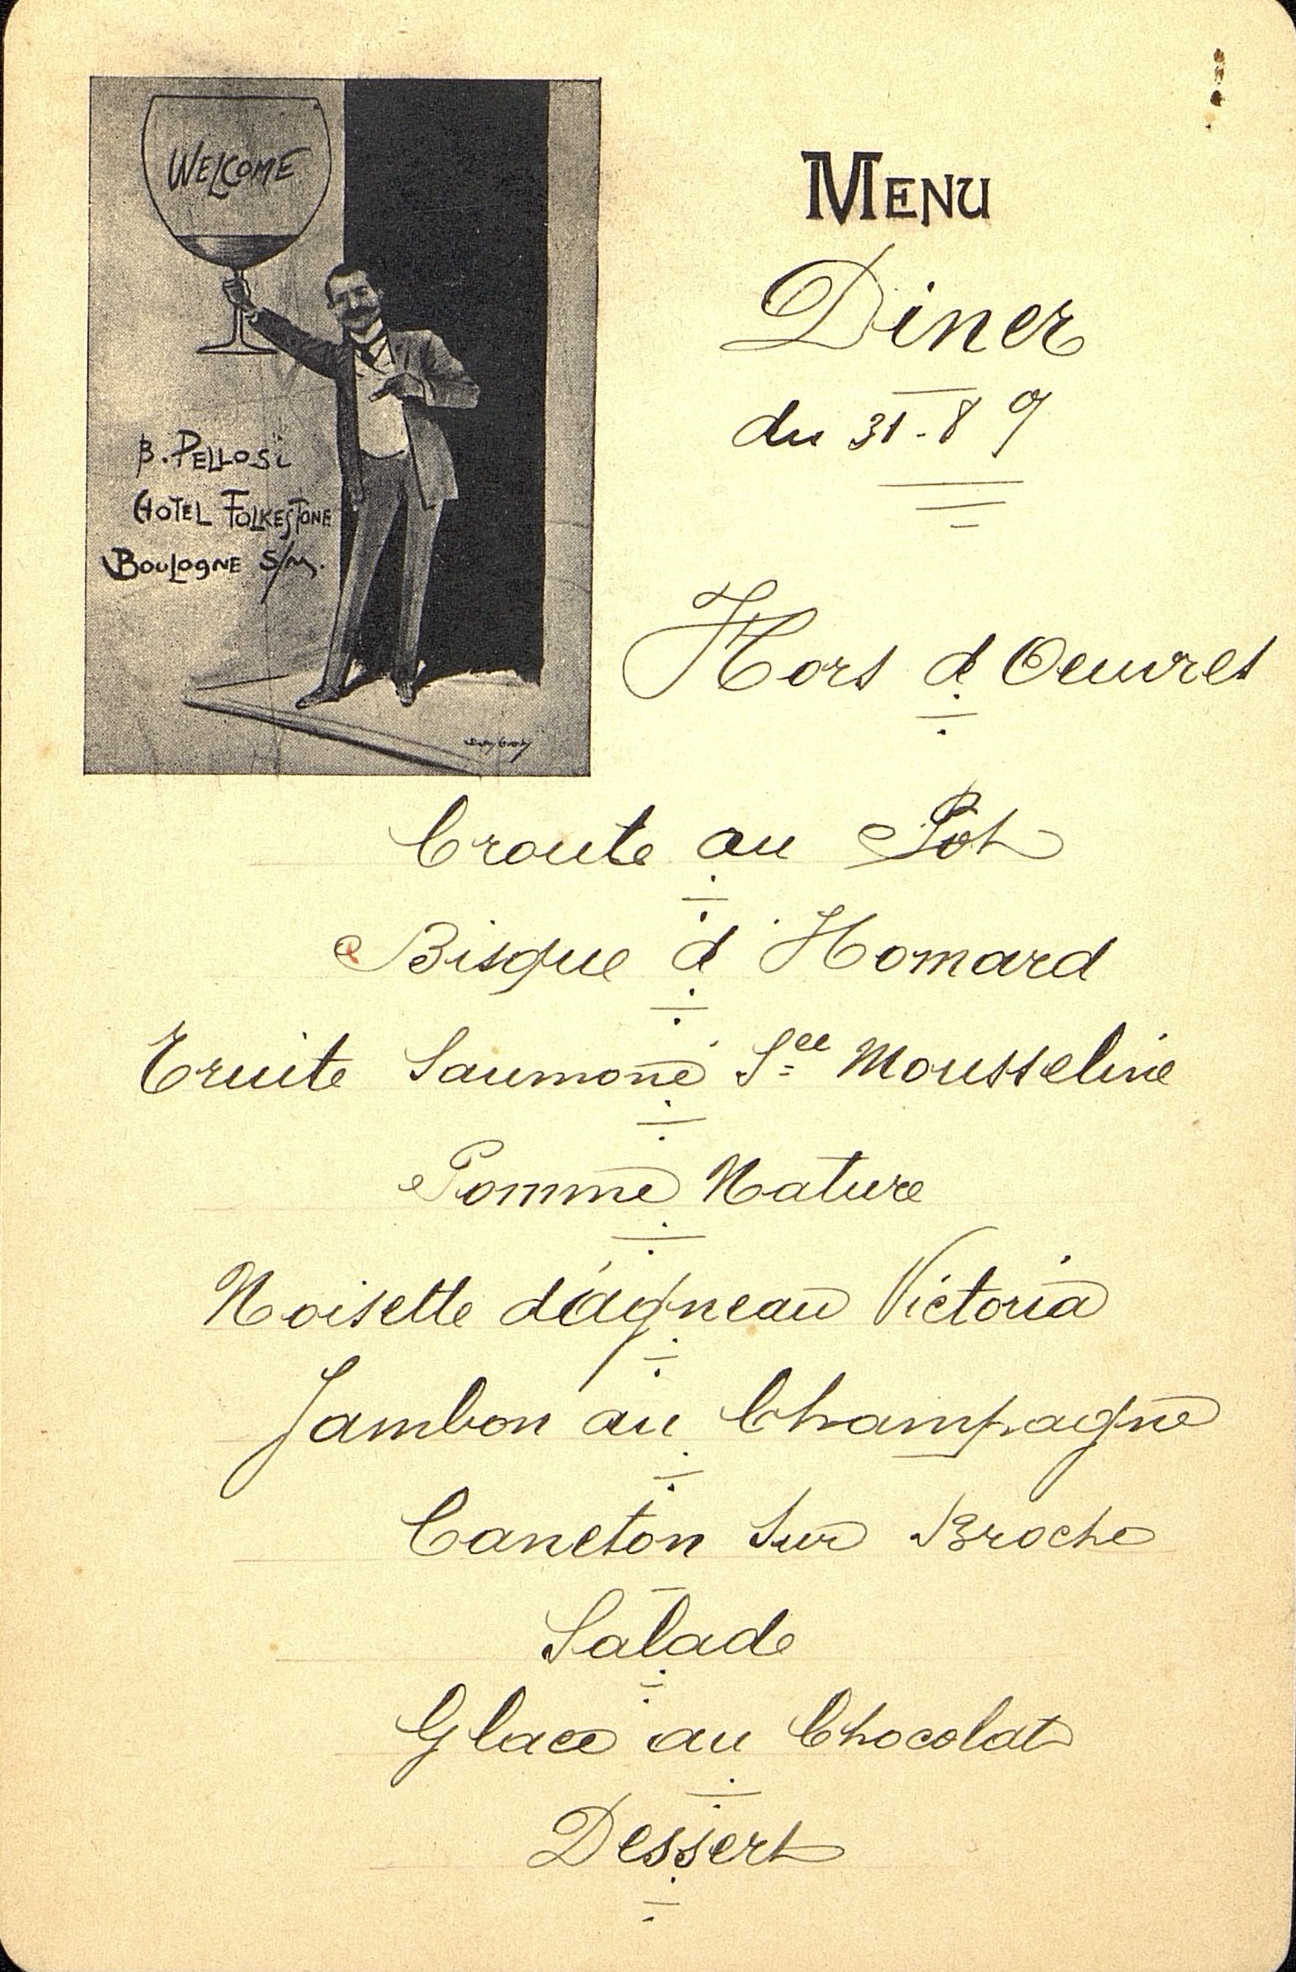 WELCOME
B. PELLOSI
HOTEL FOLKESTONE
BOULOGNE S/M.
MENU
Diner
du 31-8 9
Hors d'Oeuvres
Croute au Pot
Bisque d'Homard
Truite Saumoné Sce Mousseline
Pomme Nature
Noisette d'agneau Victoria
Jambon au Champagne
Caneton Sur Broche
Salade
Glace au Chocolat
Dessert